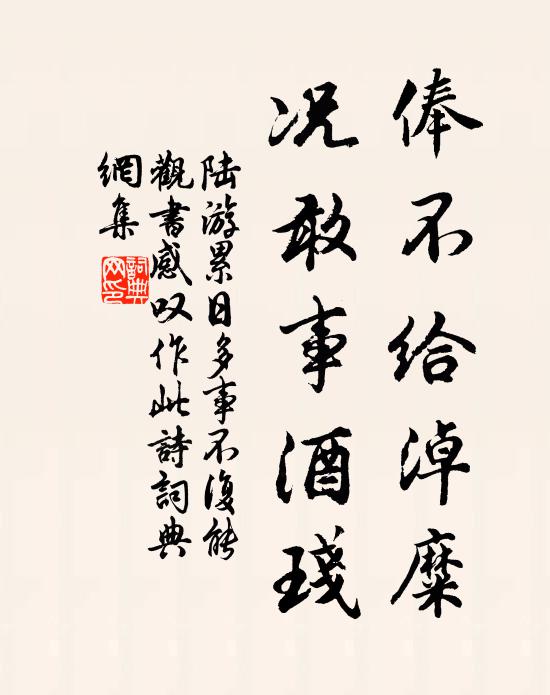 俸不给淖糜
况敢事酒琖
陆游累日多事不復能
觀書感叹作此詩詞典
網集
詞典
网印